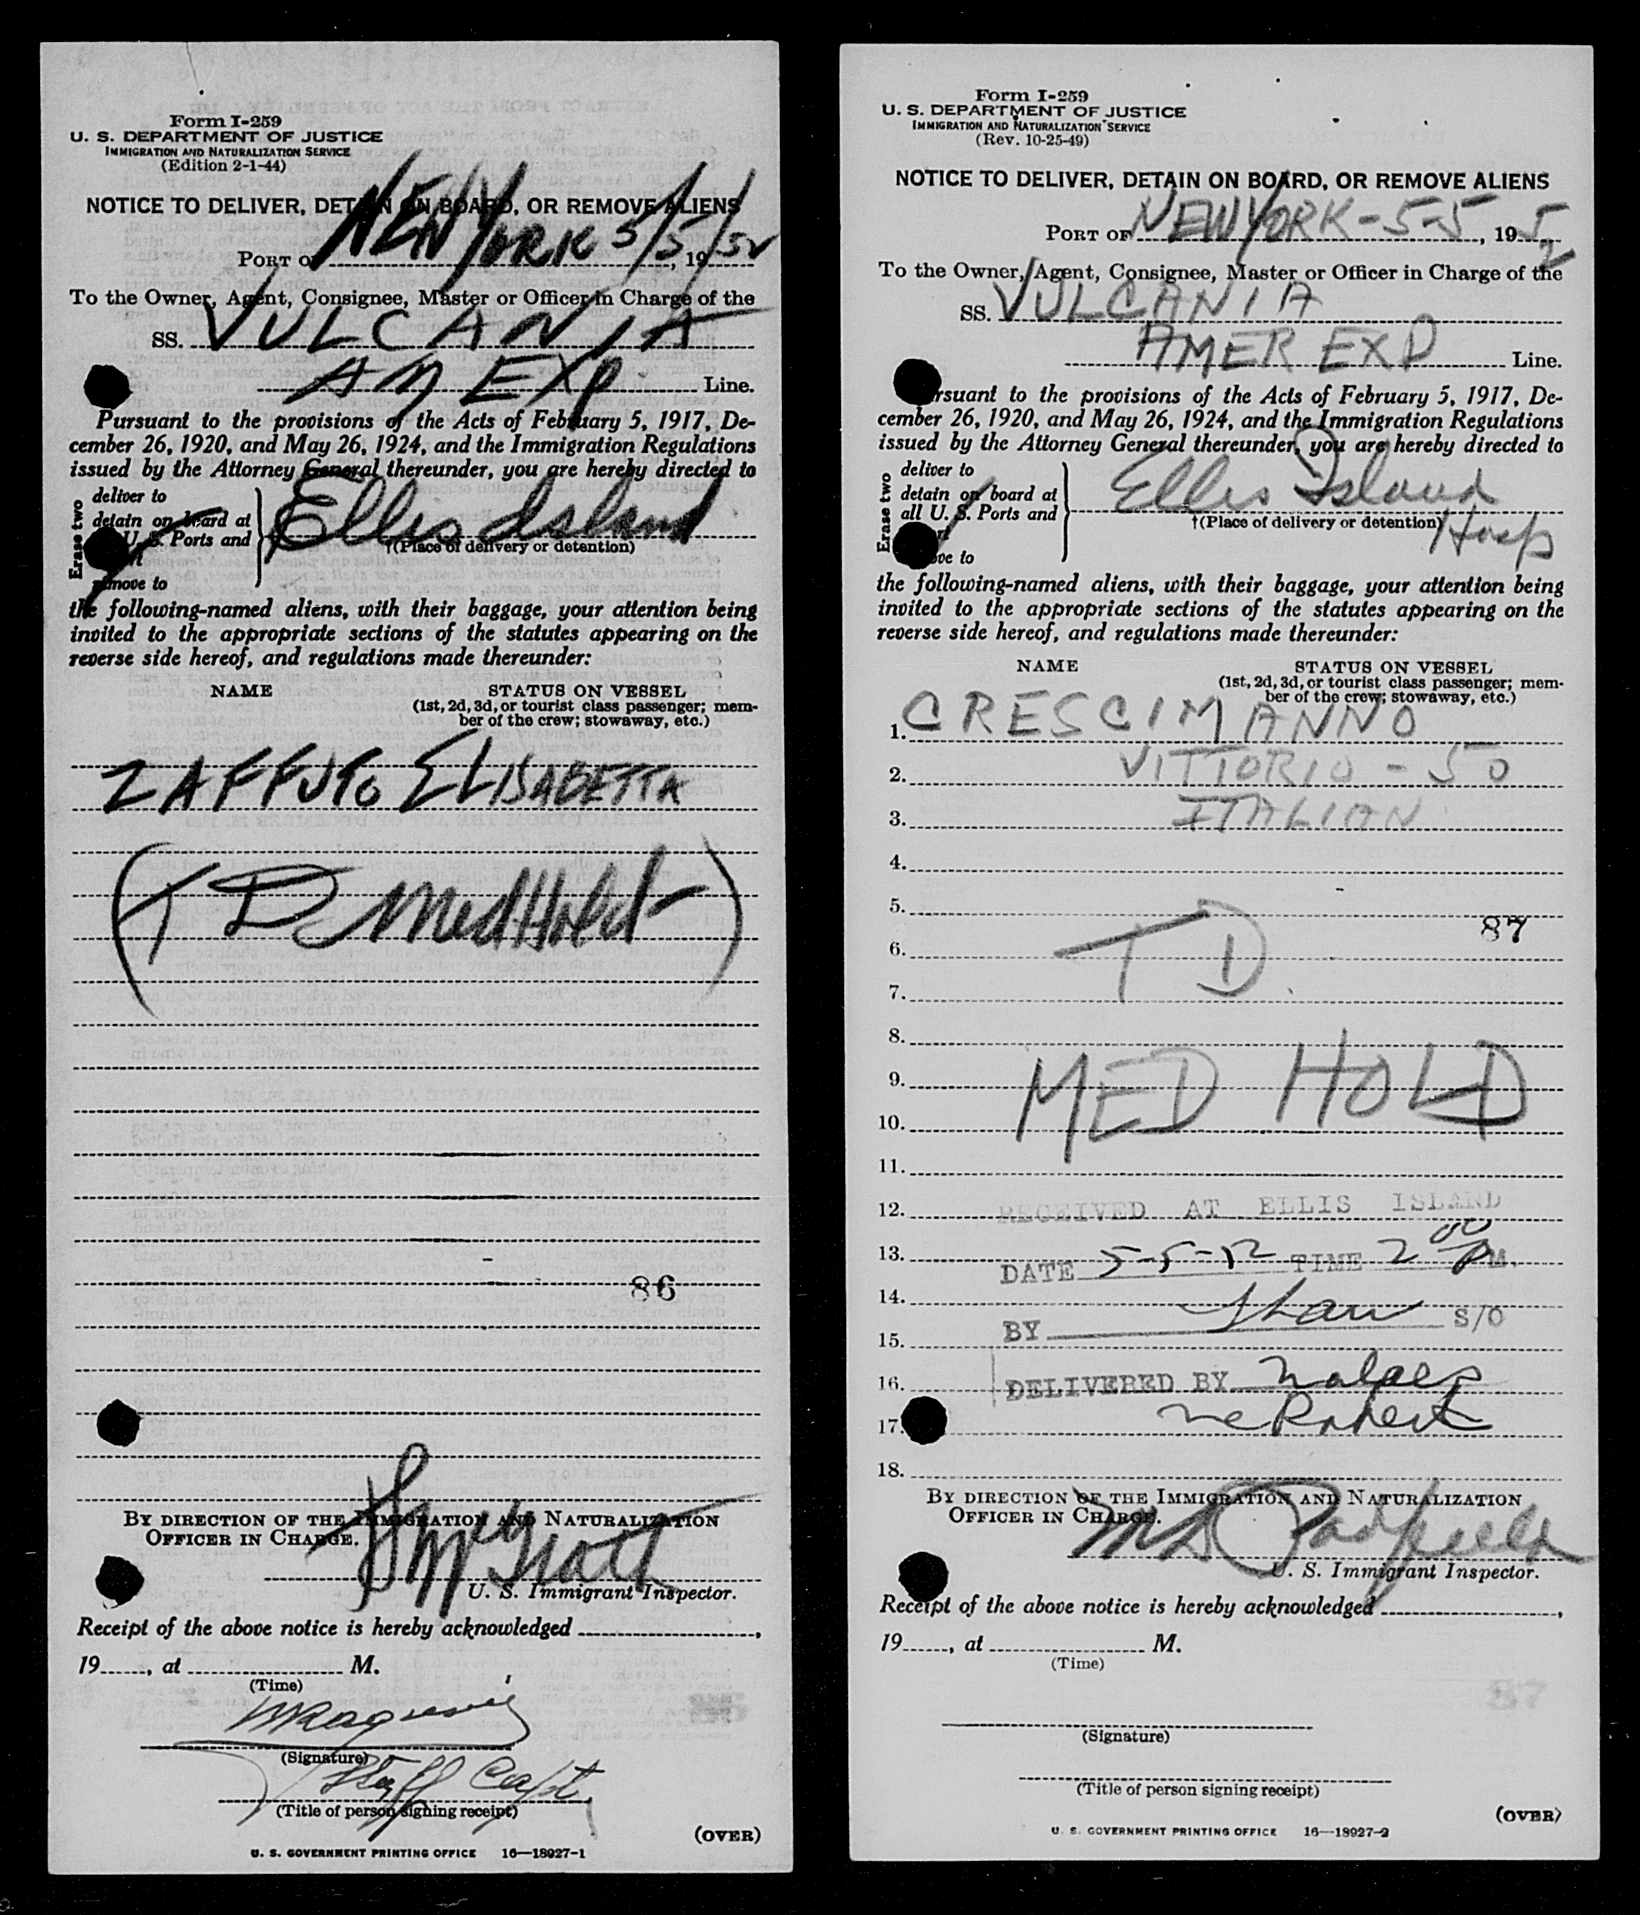 Form I-259
U. S. DEPARTMENT OF JUSTICE
IMMIGRATION AND NATURALIZATION SERVICE
(Edition 2-1-44)
NOTICE TO DELIVER, DETAIN ON BOARD, OR REMOVE ALIENS
PORT OF NEW YORK 5/5/52, 19
To the Owner, Agent, Consignee, Master or Officer in Charge of the
SS. VULCANIA
AM EXP Line.
Pursuant to the provisions of the Acts of February 5, 1917, De-
cember 26, 1920, and May 26, 1924, and the Immigration Regulations
issued by the Attorney General thereunder, you are hereby directed to
Erase two
deliver to
detain on board at
U. S. Ports and
remove to
Ellis Island
†(Place of delivery or detention)
the following-named aliens, with their baggage, your attention being
invited to the appropriate sections of the statutes appearing on the
reverse side hereof, and regulations made thereunder:
NAME STATUS ON VESSEL
(1st, 2d, 3d, or tourist class passenger; mem-
ber of the crew; stowaway, etc.)
ZAFFUTO ELISABETTA
(TD Med Hold)
86
BY DIRECTION OF THE IMMIGRATION AND NATURALIZATION
OFFICER IN CHARGE.
U. S. Immigrant Inspector.
Receipt of the above notice is hereby acknowledged ,
19 , at M.
(Time)
(Signature)
Staff Capt.
(Title of person signing receipt)
(OVER)
U. S. GOVERNMENT PRINTING OFFICE 16—18927-1
Form I-259
U. S. DEPARTMENT OF JUSTICE
IMMIGRATION AND NATURALIZATION SERVICE
(Rev. 10-25-49)
NOTICE TO DELIVER, DETAIN ON BOARD, OR REMOVE ALIENS
PORT OF NEW YORK - 5-5, 1952
To the Owner, Agent, Consignee, Master or Officer in Charge of the
SS. VULCANIA
AMER EXP Line.
Pursuant to the provisions of the Acts of February 5, 1917, De-
cember 26, 1920, and May 26, 1924, and the Immigration Regulations
issued by the Attorney General thereunder, you are hereby directed to
Erase two
deliver to
detain on board at
all U. S. Ports and
Ellis Island
†(Place of delivery or detention)
Hosp
the following-named aliens, with their baggage, your attention being
invited to the appropriate sections of the statutes appearing on the
reverse side hereof, and regulations made thereunder:
NAME STATUS ON VESSEL
(1st, 2d, 3d, or tourist class passenger; mem-
ber of the crew; stowaway, etc.)
1. CRESCIMANNO
2. VITTORIO - 50
3. ITALIAN
4.
5.
87
6. TD
7.
8.
9. MED HOLD
10.
11.
12. RECEIVED AT ELLIS ISLAND
13. DATE 5-5-52 TIME 2 00 P M.
14.
15. BY Shaw S/O
16. DELIVERED BY
17.
18.
BY DIRECTION OF THE IMMIGRATION AND NATURALIZATION
OFFICER IN CHARGE.
U. S. Immigrant Inspector.
Receipt of the above notice is hereby acknowledged ,
19 , at M.
(Time)
87
(Signature)
(Title of person signing receipt)
(OVER)
U. S. GOVERNMENT PRINTING OFFICE 16—18927-2